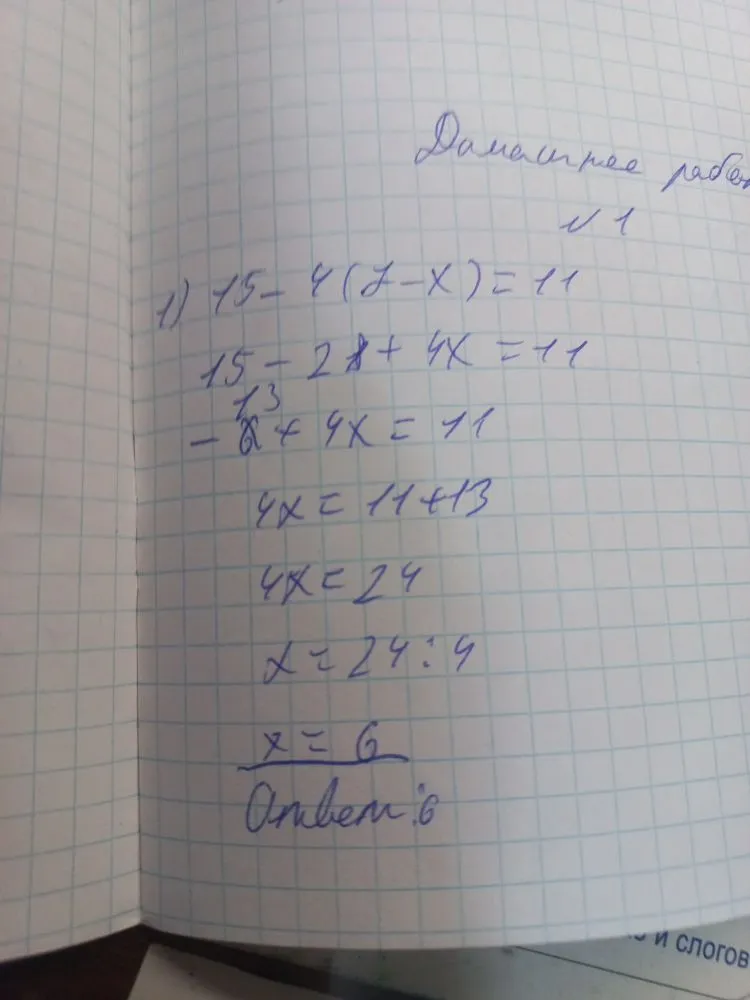 Домашнее работ
№ 1
1) 15 - 4(7 - x) = 11
15 - 28 + 4x = 11
- 13 + 4x = 11
4x = 11 + 13
4x = 24
x = 24 : 4
x = 6
Ответ: 6
и слогов